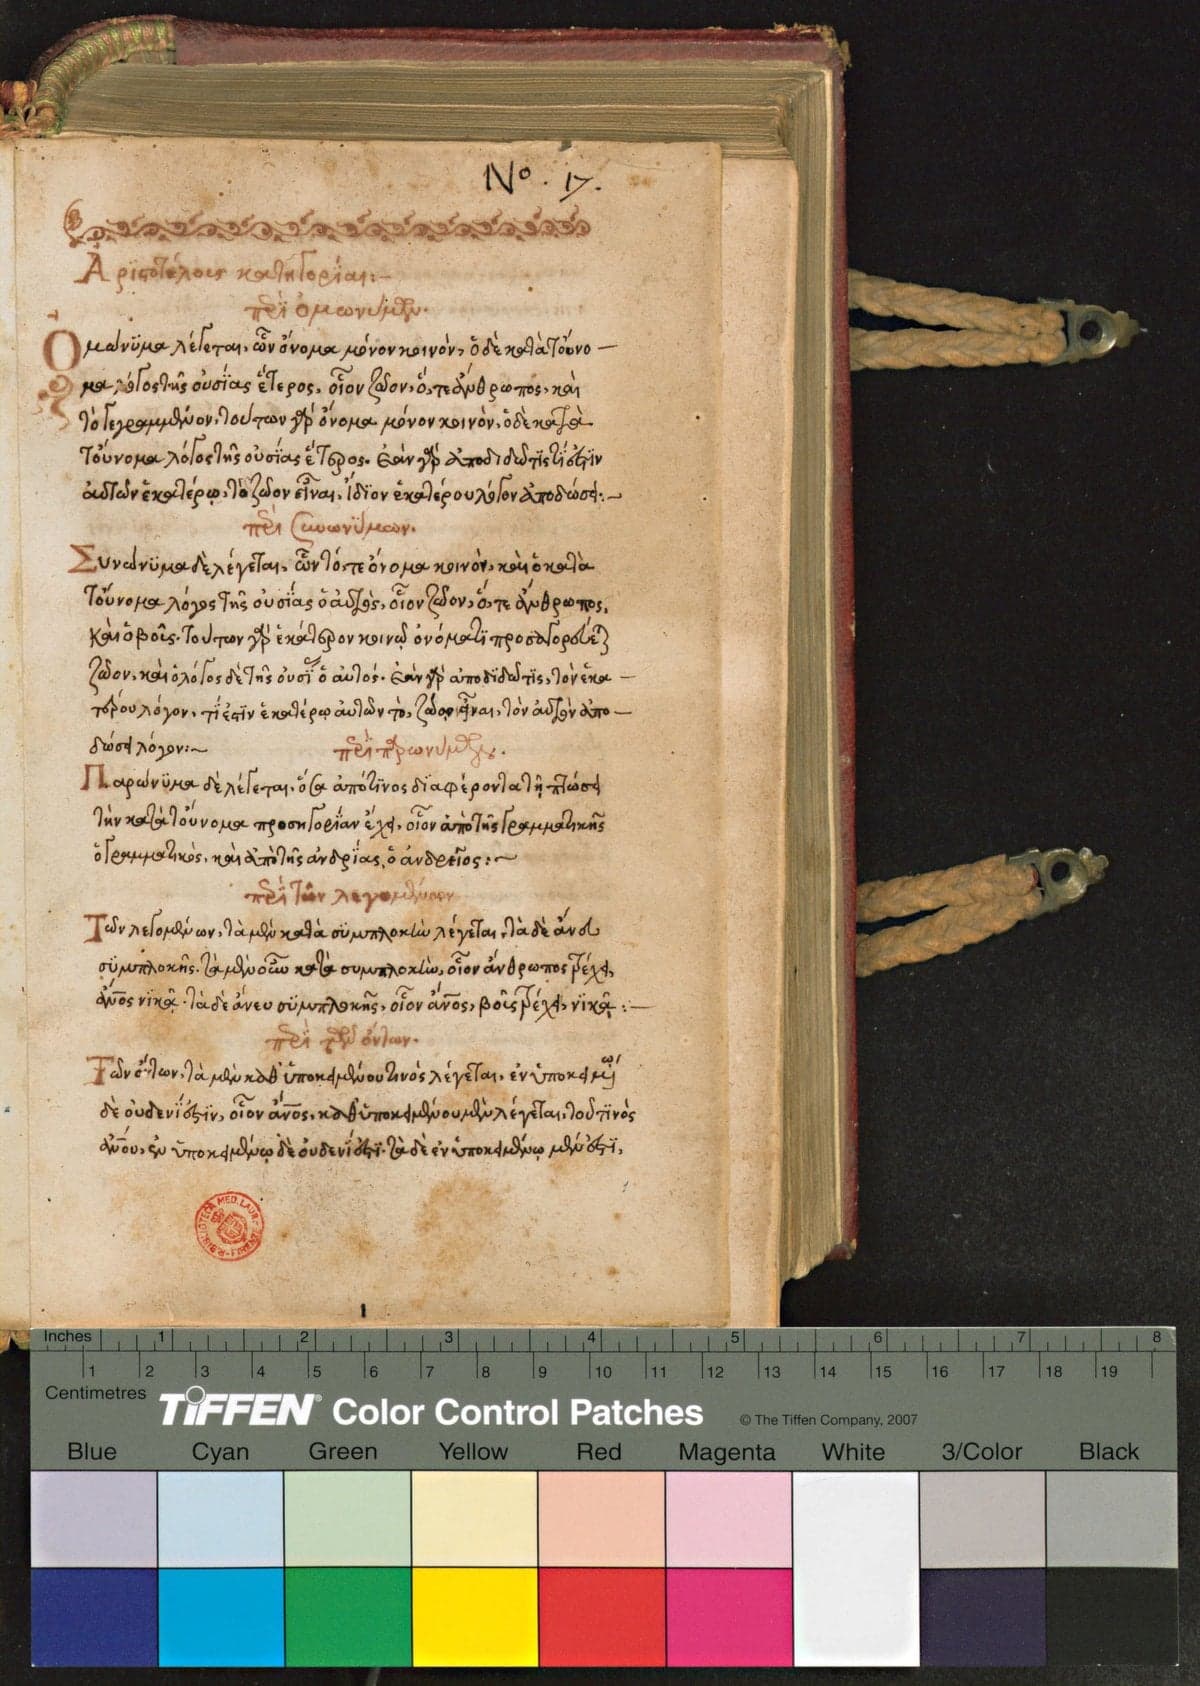 Nο. 17.
Ἀριστοτέλους κατηγορίαι:~
περὶ ὁμωνύμων.
Ὁμώνυμα λέγεται, ὧν ὄνομα μόνον κοινὸν, ὁ δὲ κατὰ τοὔνο
μα λόγος τῆς οὐσίας ἕτερος, οἷον ζῶον, ὅ, τε ἄνθρωπος, καὶ
τὸ γεγραμμένον, τούτων γὰρ ὄνομα μόνον κοινὸν, ὁ δὲ κατὰ
τοὔνομα λόγος τῆς οὐσίας ἕτερος. ἐὰν γὰρ ἀποδιδῶ τίς τί ἐστὶν
αὐτῶν ἑκατέρῳ, τὸ ζῶον εἶναι, ἴδιον ἑκατέρου λόγον ἀποδώσει:~
περὶ συνωνύμων.
Συνώνυμα δὲ λέγεται, ὧν τό, τε ὄνομα κοινὸν, καὶ ὁ κατὰ
τοὔνομα λόγος τῆς οὐσίας ὁ αὐτὸς, οἷον ζῶον, ὅ, τε ἄνθρωπος,
καὶ ὁ βοῦς. τούτων γὰρ ἑκάτερον κοινῷ ὀνόματι προσαγορεύεται
ζῶον, καὶ ὁ λόγος δὲ τῆς οὐσίας ὁ αὐτός. ἐὰν γὰρ ἀποδιδῶ τις, τὸν ἑκα
τέρου λόγον, τί ἐστὶν ἑκατέρῳ αὐτῶν τὸ, ζῶον εἶναι, τὸν αὐτὸν ἀπο
δώσει λόγον:~ περὶ παρωνύμων.
Παρώνυμα δὲ λέγεται, ὅσα ἀπό τινος διαφέροντα τῇ πτώσει
τὴν κατὰ τοὔνομα προσηγορίαν ἔχει, οἷον ἀπὸ τῆς γραμματικῆς
ὁ γραμματικὸς, καὶ ἀπὸ τῆς ἀνδρίας, ὁ ἀνδρεῖος:~
περὶ τῶν λεγομένων
Τῶν λεγομένων, τὰ μὲν κατὰ συμπλοκὴν λέγεται, τὰ δὲ ἄνευ
συμπλοκῆς. τὰ μὲν οὖν κατὰ συμπλοκὴν, οἷον ἄνθρωπος τρέχει,
ἄνος νικᾷ. τὰ δὲ ἄνευ συμπλοκῆς, οἷον ἄνος, βοῦς τρέχει, νικᾷ:~
περὶ τῶν ὄντων.
Τῶν ὄντων, τὰ μὲν καθ' ὑποκειμένου τινὸς λέγεται, ἐν ὑποκειμένῳ
δὲ οὐδενί ἐστιν, οἷον ἄνος, καθ' ὑποκειμένου μὲν λέγεται, τοῦ τινὸς
ἀνου, ἐν ὑποκειμένῳ δὲ οὐδενί ἐστι. τὰ δὲ ἐν ὑποκειμένῳ μέν ἐστι,
1
Inches 1 2 3 4 5 6 7 8
1 2 3 4 5 6 7 8 9 10 11 12 13 14 15 16 17 18 19
Centimetres
TIFFEN® Color Control Patches © The Tiffen Company, 2007
Blue Cyan Green Yellow Red Magenta White 3/Color Black